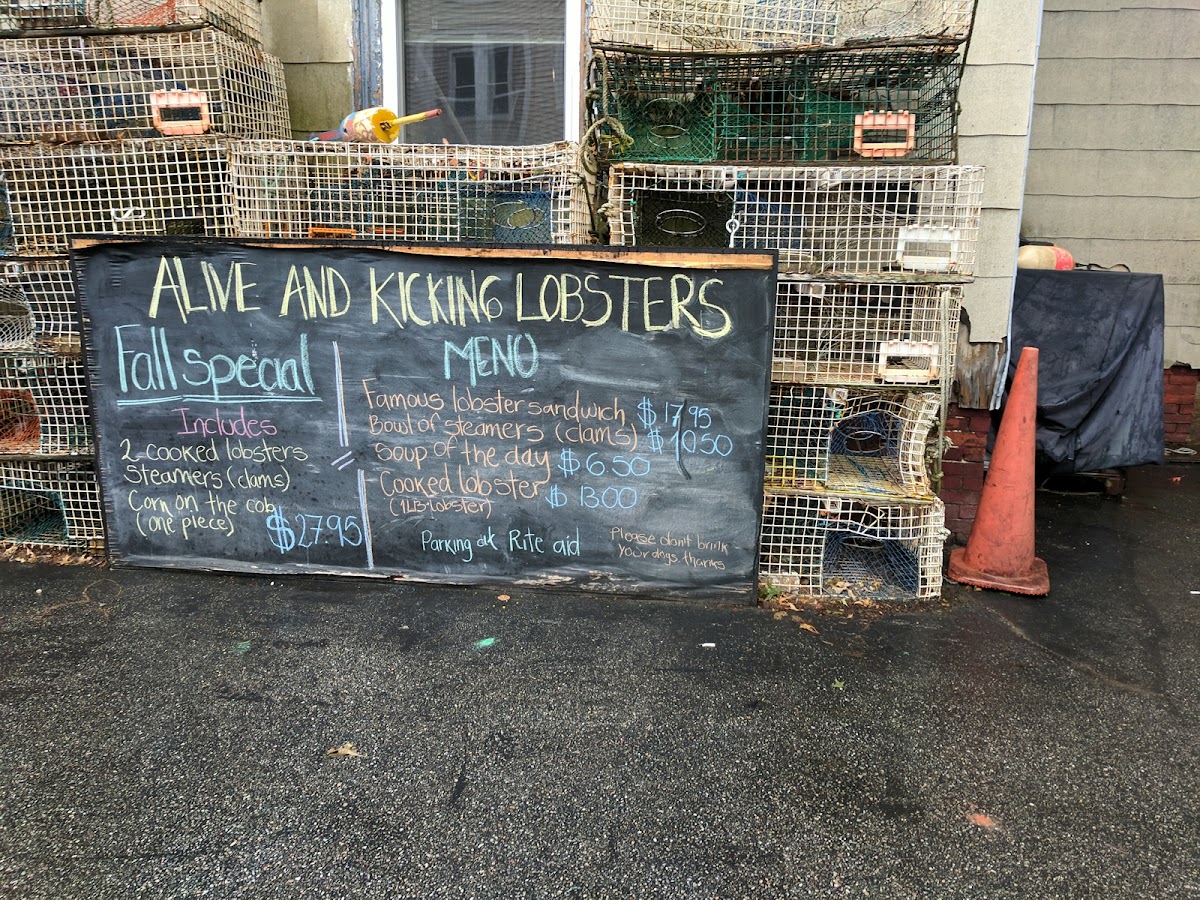 ALIVE AND KICKING LOBSTERS
Fall special
Includes
2 cooked lobsters
Steamers (clams)
Corn on the cob
(one piece) $27.95
MENU
Famous lobster sandwich $17.95
Bowl of steamers (clams) $10.50
Soup of the day $6.50
Cooked lobster $13.00
(1LB lobster)
Parking at Rite aid
Please don't brink
your dogs. thanks